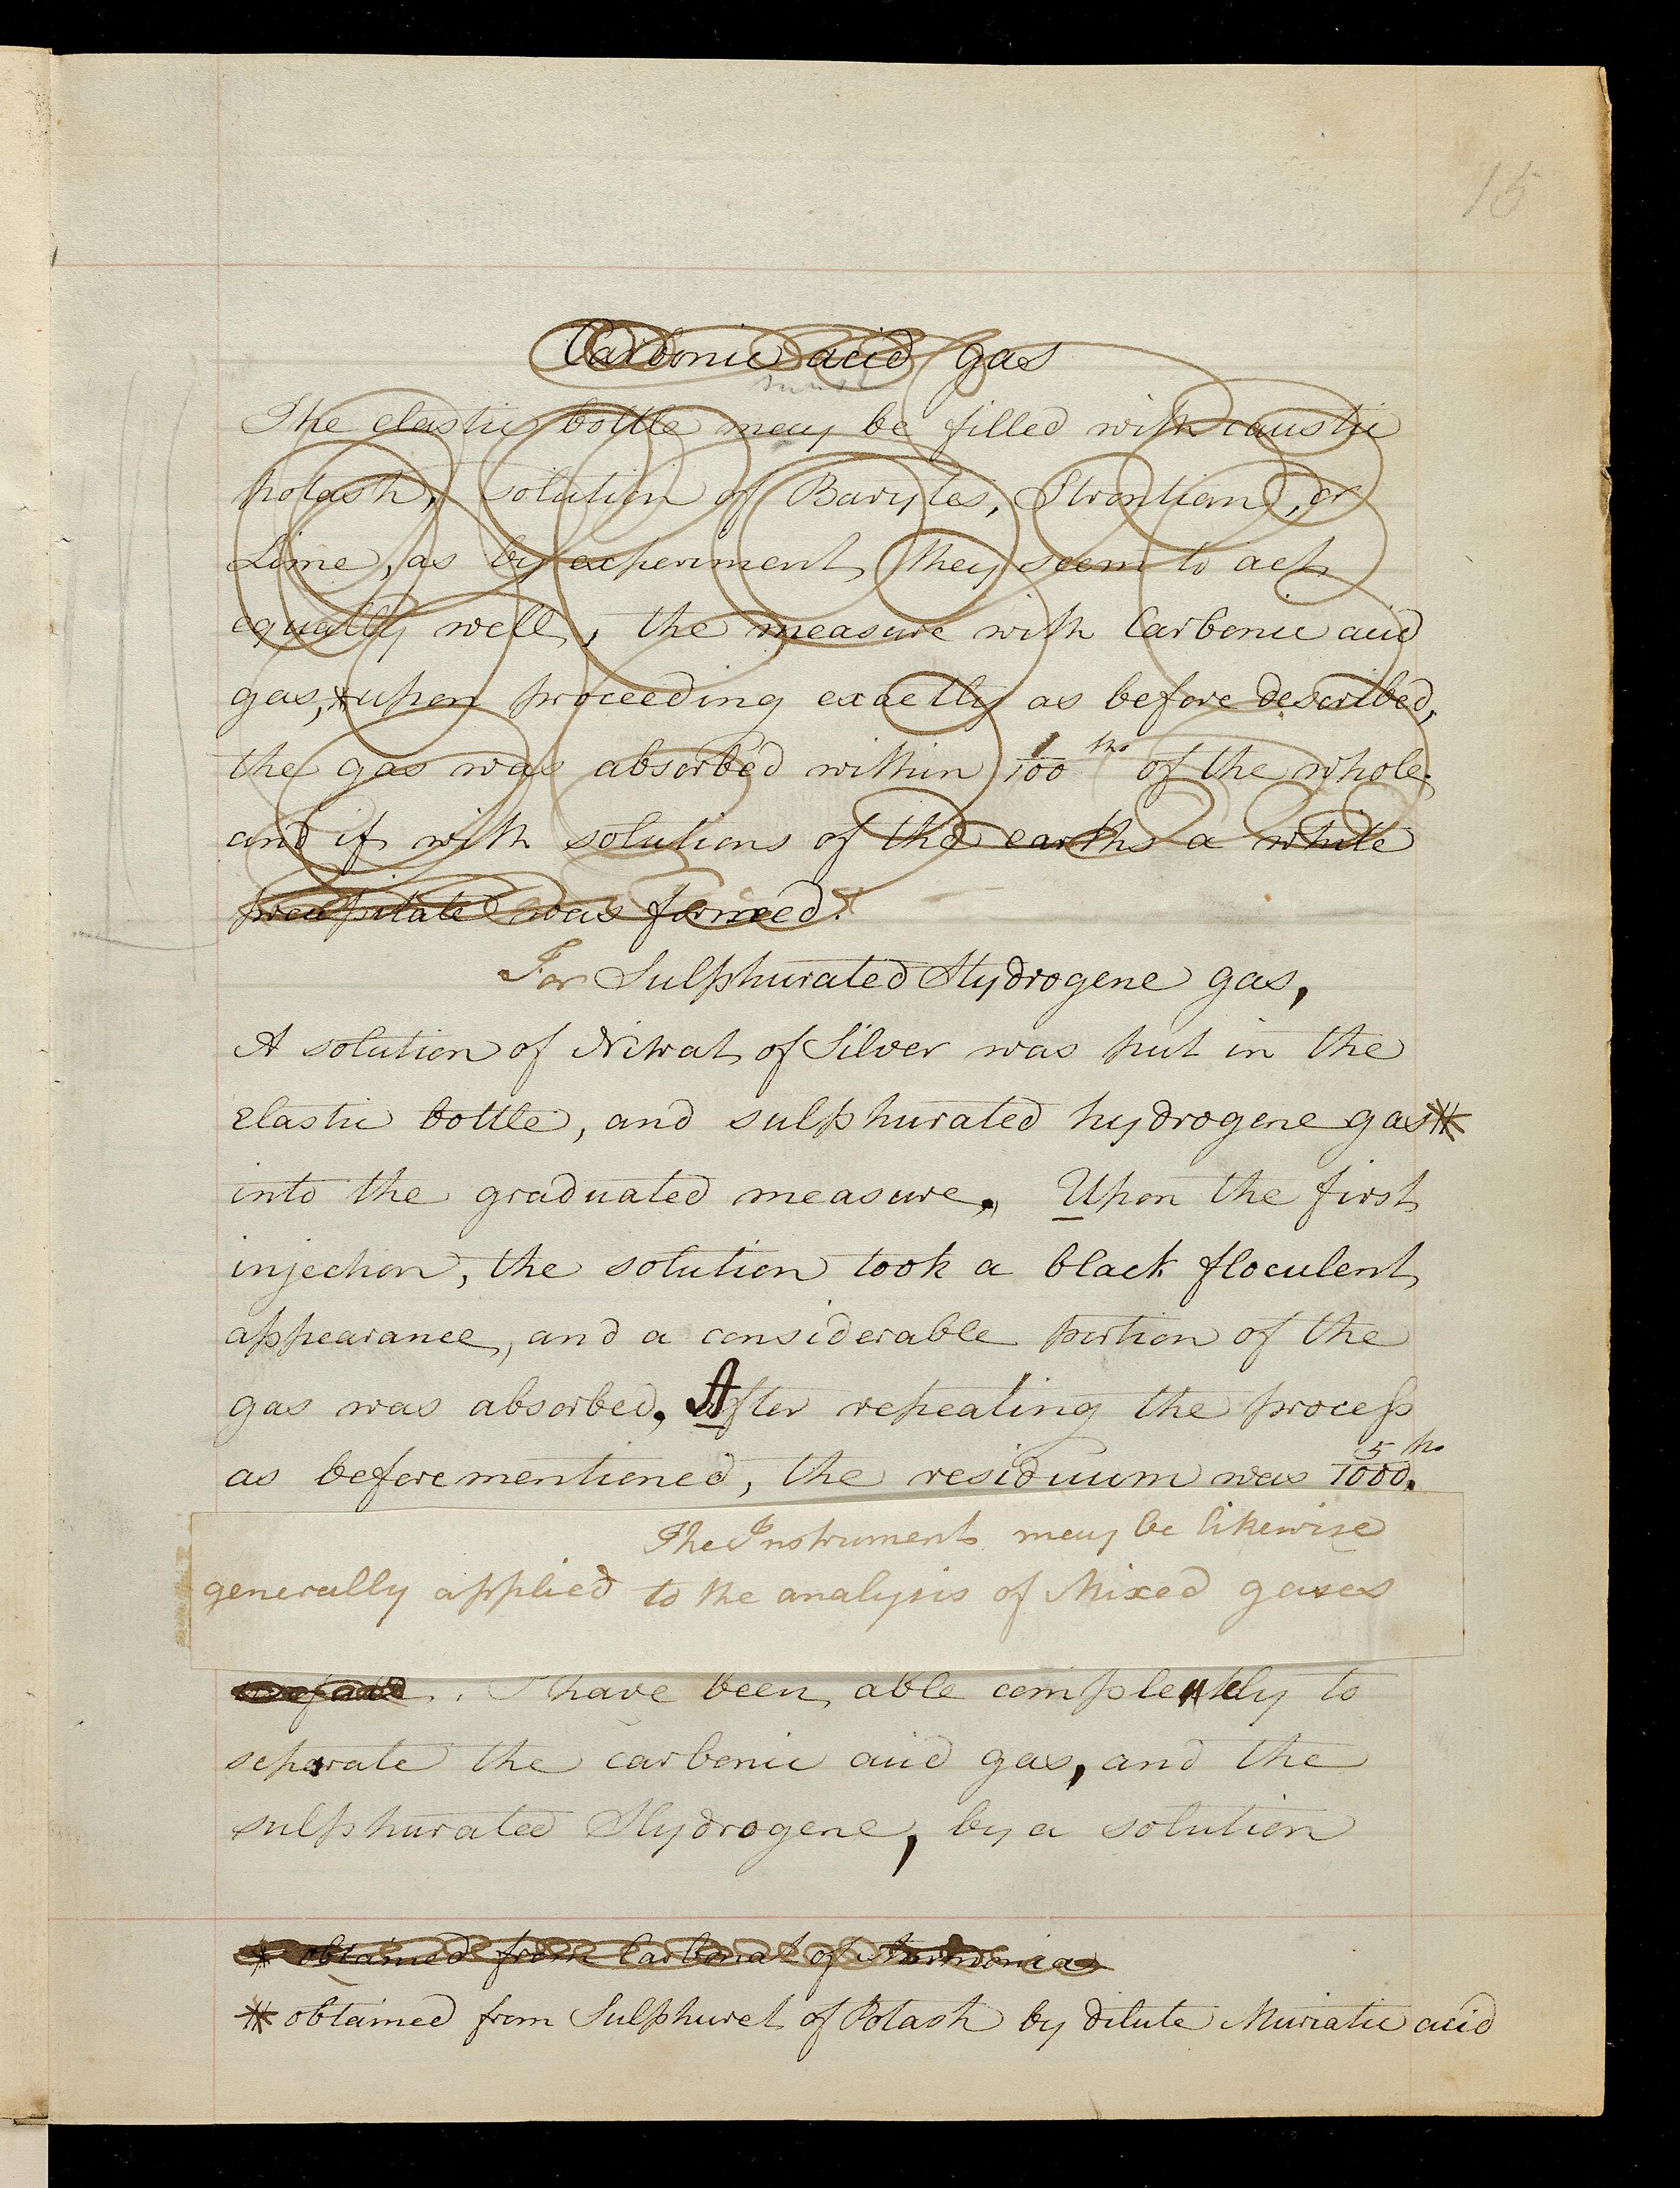 15
Carbonic acid gas
The elastic bottle may be filled with caustic
potash, solution of Barytes, Strontian, or
Lime, as by experiment they seem to act
equally well, the measure with Carbonic acid
gas,* upon proceeding exactly as before described,
the gas was absorbed within 1/100ths of the whole;
and if with solutions of the earths a white
precipitate was formed.
For Sulphurated Hydrogene gas,
A solution of Nitrat of Silver was put in the
elastic bottle, and sulphurated hydrogene gas⁕
into the graduated measure. Upon the first
injection, the solution took a black floculent
appearance, and a considerable portion of the
gas was absorbed. After repeating the process
as beforementioned, the residuum was 5/1000ths.
The Instrument may be likewise
generally applied to the analysis of Mixed gases
I have been able completely to
separate the carbonic acid gas, and the
sulphurated Hydrogene, by a solution
* obtained from Carbonat of Ammonia
⁕ obtained from Sulphuret of Potash by dilute Muriatic acid